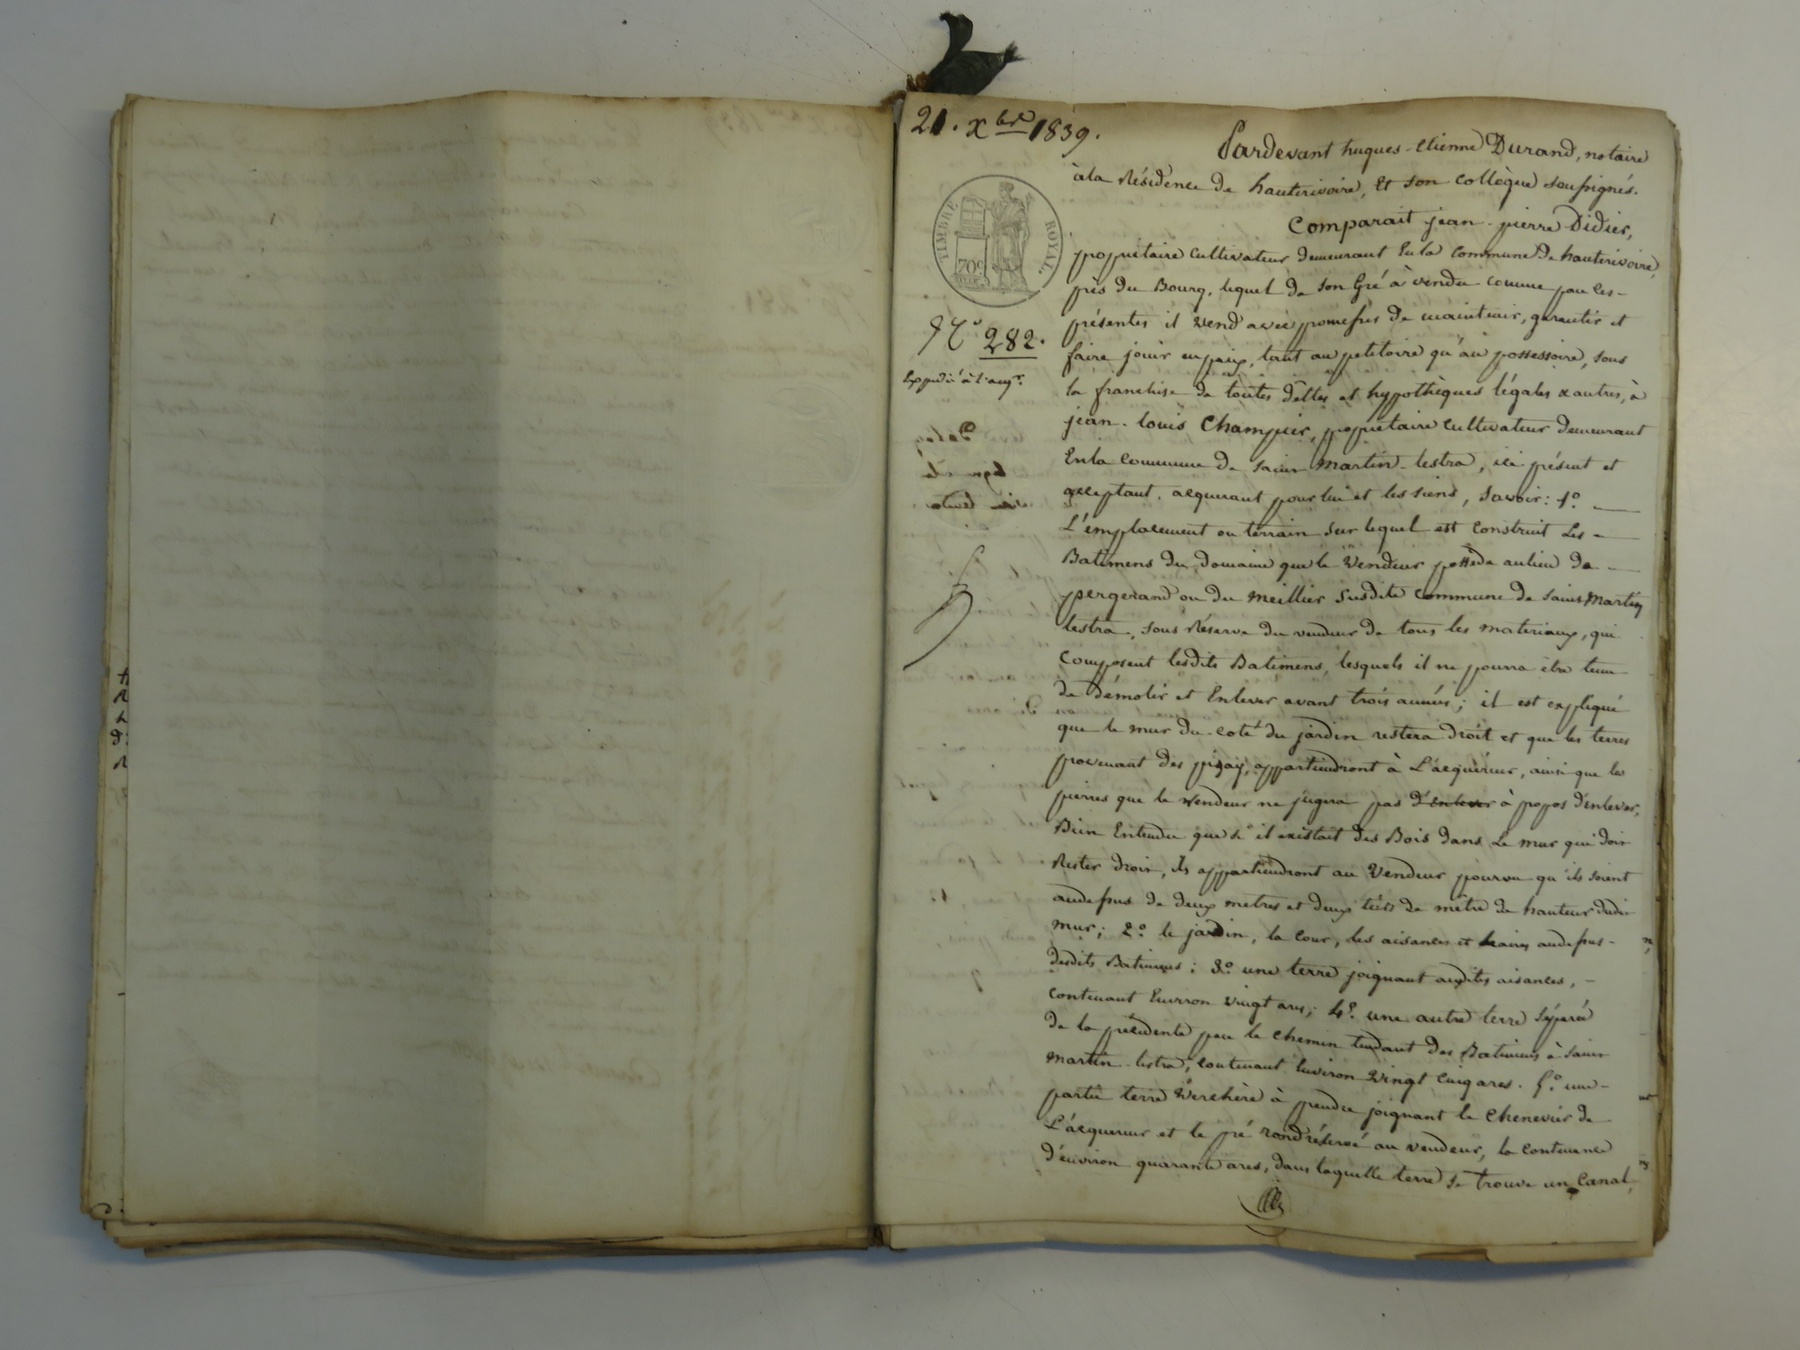 21. Xbre 1839.
Pardevant hugues-etienne Durand, notaire
à la Résidence de hauterivoire, Et son collègue soussignés.
Comparait jean-pierre Didier,
propriétaire cultivateur demeurant En la commune De hauterivoire,
près du Bourg, lequel de son Gré à vendu comme par les-
présentes il vend avec promesses de maintenir, garantir et
faire jouir en paix, tant au petitoire qu'au possessoire, sous
la franchise de toutes dettes et hypothèques légales & autres, à
jean-louis Champier, propriétaire cultivateur demeurant
En la commune de saint Martin-lestra, ici présent et
acceptant, acquerant pour lui et les siens, Savoir: 1°.
L'emplacement ou terrain sur lequel est construit Les
Batimens du domaine que le Vendeur possède au lieu de
pergerand ou du Meillier susdite commune de saint Martin
lestra, sous Réserve du vendeur de tous les materiaux, qui
composent lesdits Batimens, lesquels il ne pourra être tenu
de démolir et Enlever avant trois années; il est expliqué
que le mur du coté du jardin restera droit et que les terres
provenant des pizay, appartiendront à L'acquereur, ainsi que les
pierres que le vendeur ne jugera pas d'enlever à propos d'enlever,
Bien Entendu que s'il existait des Bois dans Le mur qui doit
Rester droit, ils appartiendront au Vendeur pourvu qu'ils soient
audessus de deux metres et deux tiers de mètre de hauteur dudit
mur; 2°. le jardin, la cour, les aisances et audessus-
desdits Batimens; 3°. une terre joignant auxdites aisances,-
contenant Environ vingt ares; 4°. une autre terre séparée
de la précédente par le chemin tendant des Batimens à Saint
Martin-lestra, contenant Environ Vingt cinq ares. 5°. une-
partie terre Verchère à prendre joignant le chenevier de
L'acquereur et le pré rond réservé au vendeur, la contenance
d'environ quarante ares, dans laquelle terre se trouve un canal,
TIMBRE ROYAL
70c
N° 282.
Expédié à l'aqr.